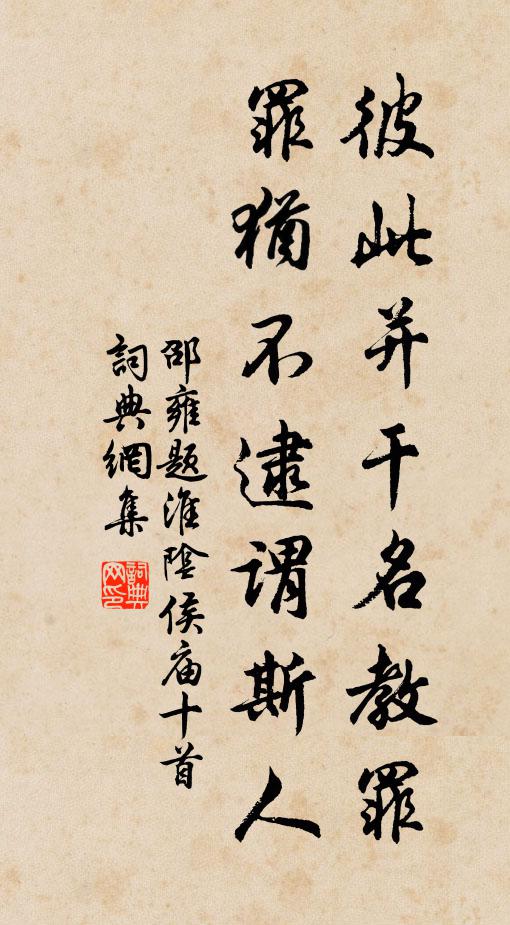 彼此并干名教罪
罪猶不逮謂斯人
邵雍题淮陰侯庙十首
詞典網集
詞典网印